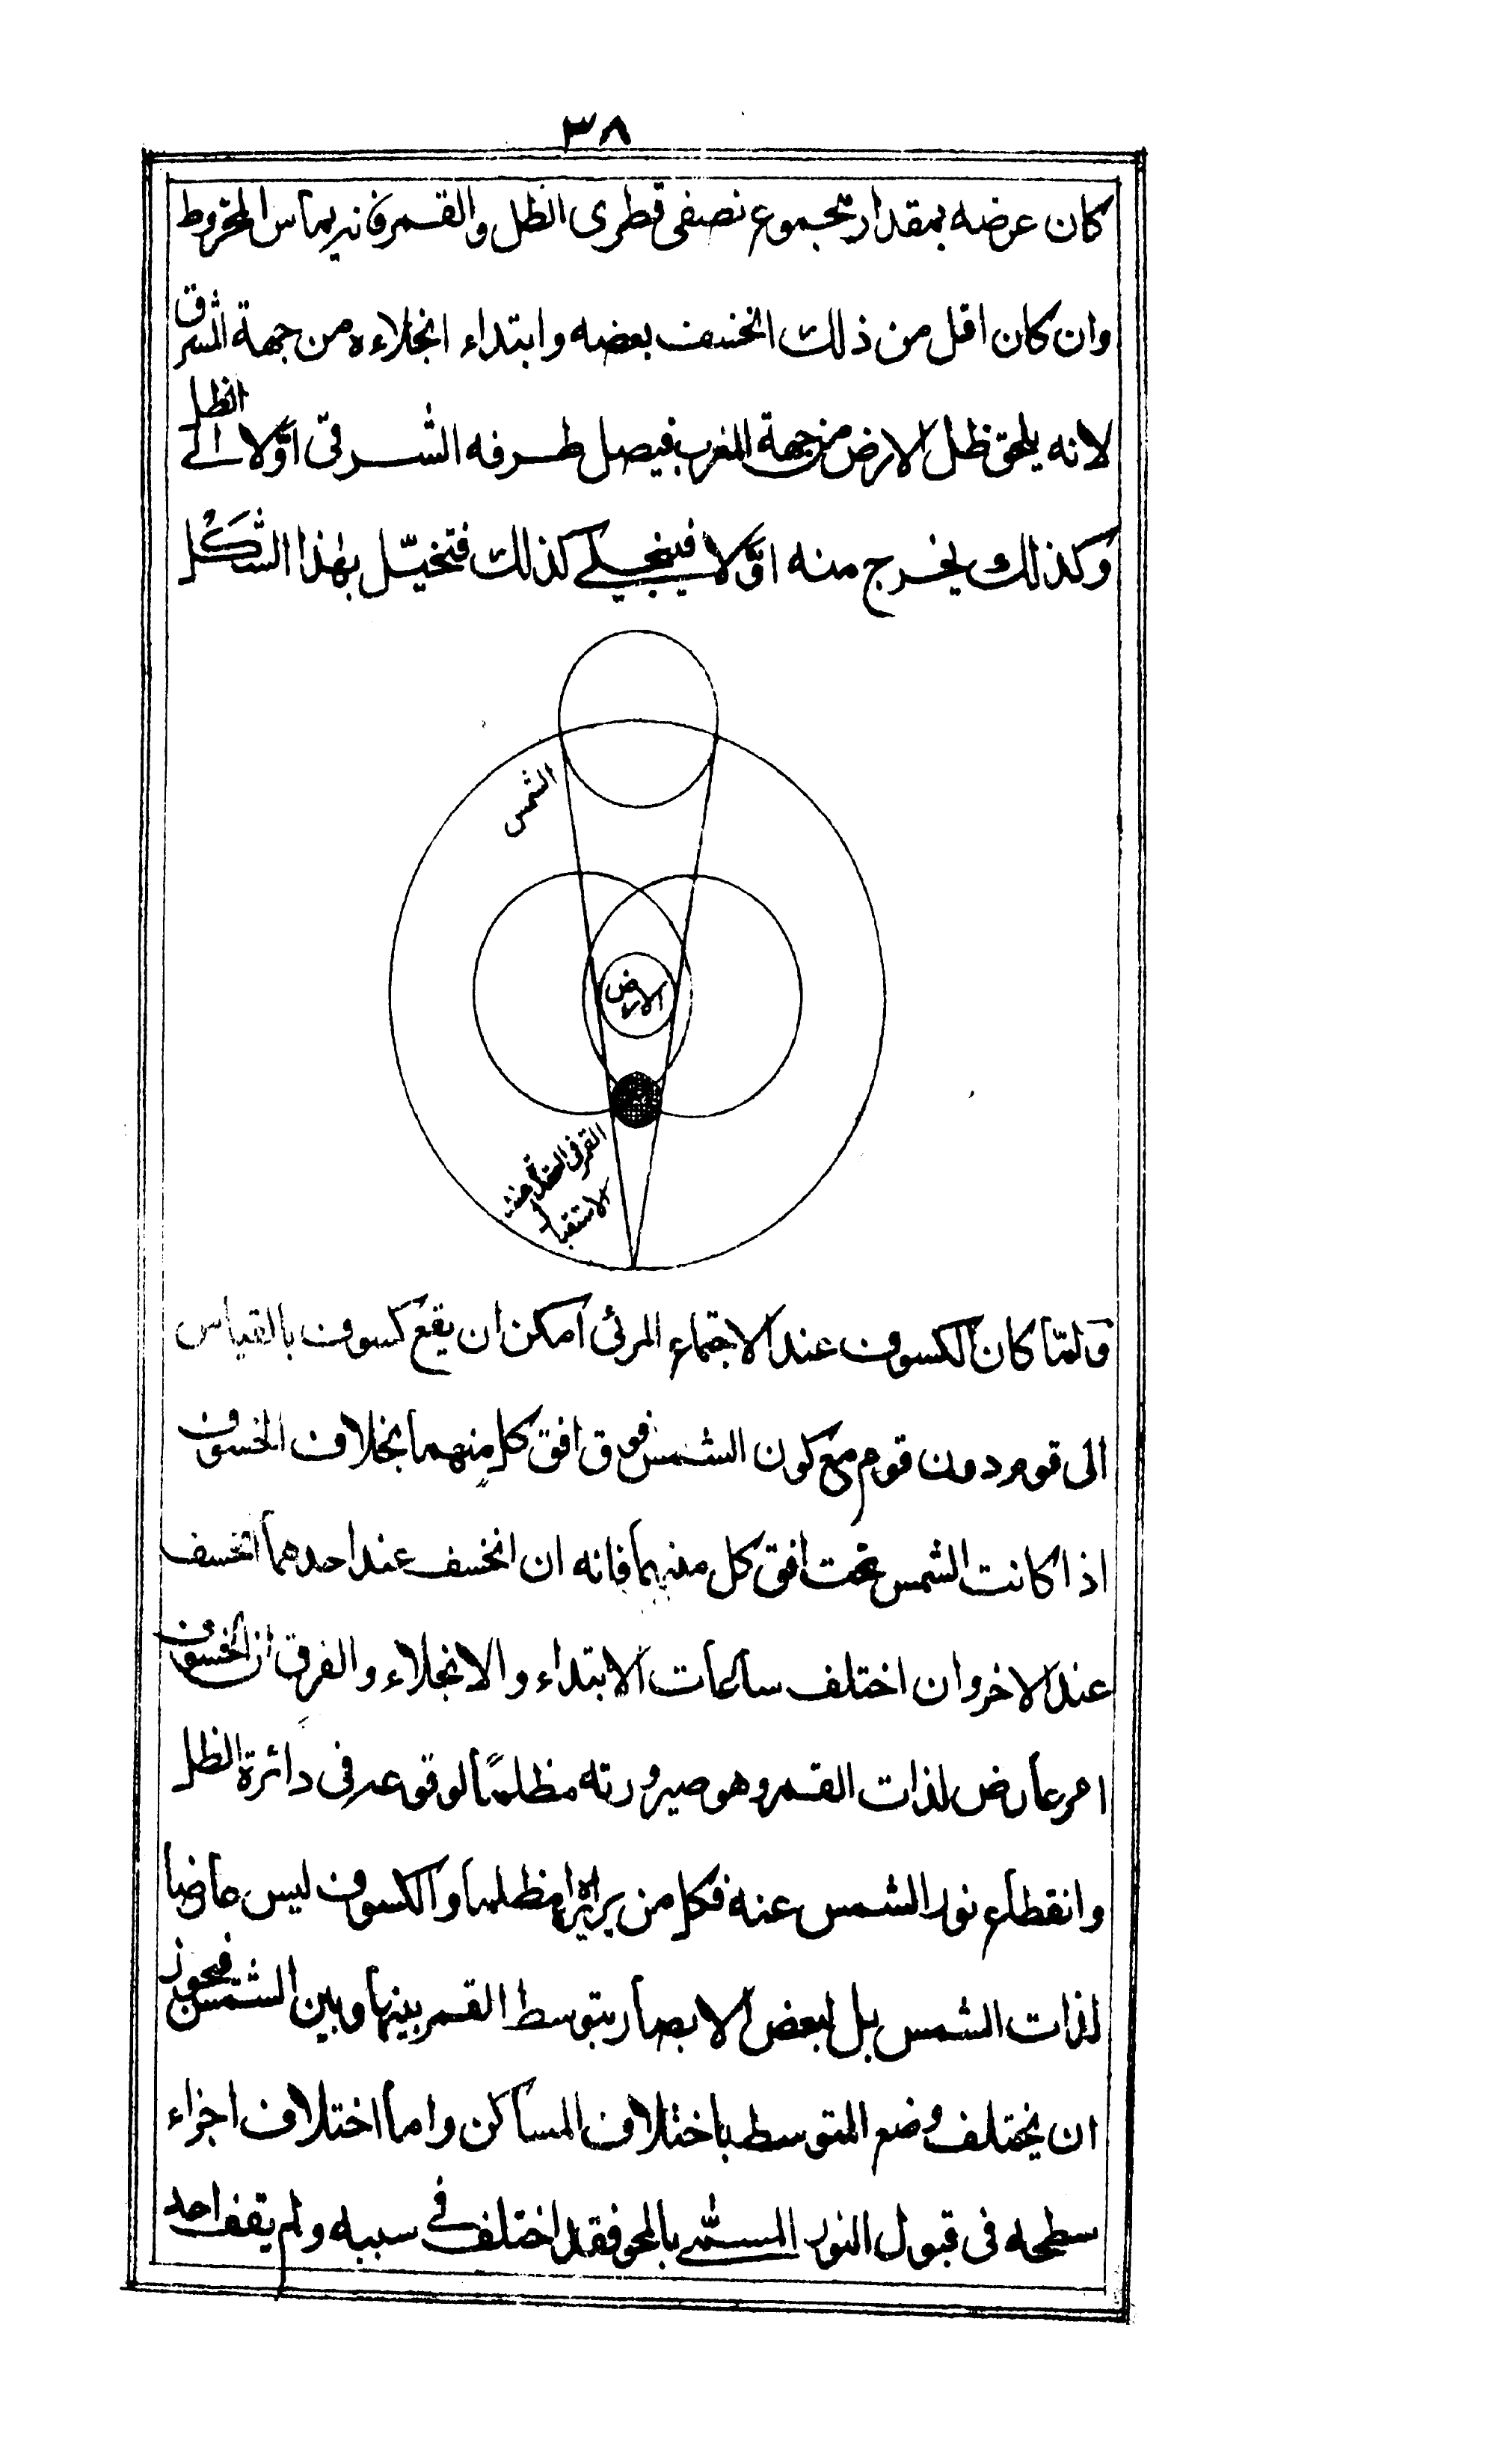 ٣٨
كان عرضه بمقدار مجموع نصفى قطرى الظل والقمر فانه يماس المخروط
وان كان اقل من ذلك انخسف بعضه وابتداء انجلاءه من جهة الشرق
لانه يلحق ظل الارض من جهة المغرب فيصل طرفه الشرقى اوّلا الے الظل
وكذلك يخرج منه اوّلا فينجلے كذلك فتخيّل بهذا الشَكْل
الشمس
الارض
القمر فى
الاستقبال
ولمّا كان الكسوف عند الاجتماع المرئى امكن ان يقع كسوف بالقياس
الى قوم دون قوم مع كون الشمس فوق افق كل منهما بخلاف الخسوف
اذا كانت الشمس تحت افق كل منهما فانه ان انخسف عند احدهما انخسف
عند الاخر وان اختلف ساعات الابتداء والانجلاء والفرق ان الخسوف
امر عارض لذات القمر وهو صيرورته مظلمًا لوقوعه فى دائرة الظل
وانقطاع نور الشمس عنه فكل من يراه يراه مظلما والكسوف ليس عارضا
لذات الشمس بل لبعض الابصار بتوسط القمر بينها وبين الشمس فيجوز
ان يختلف وضع المتوسط باختلاف المساكن واما اختلاف اجزاء
سطحه فى قبول النور المسمّے بالمحو فقد اختلف فے سببه ولم يقف احد